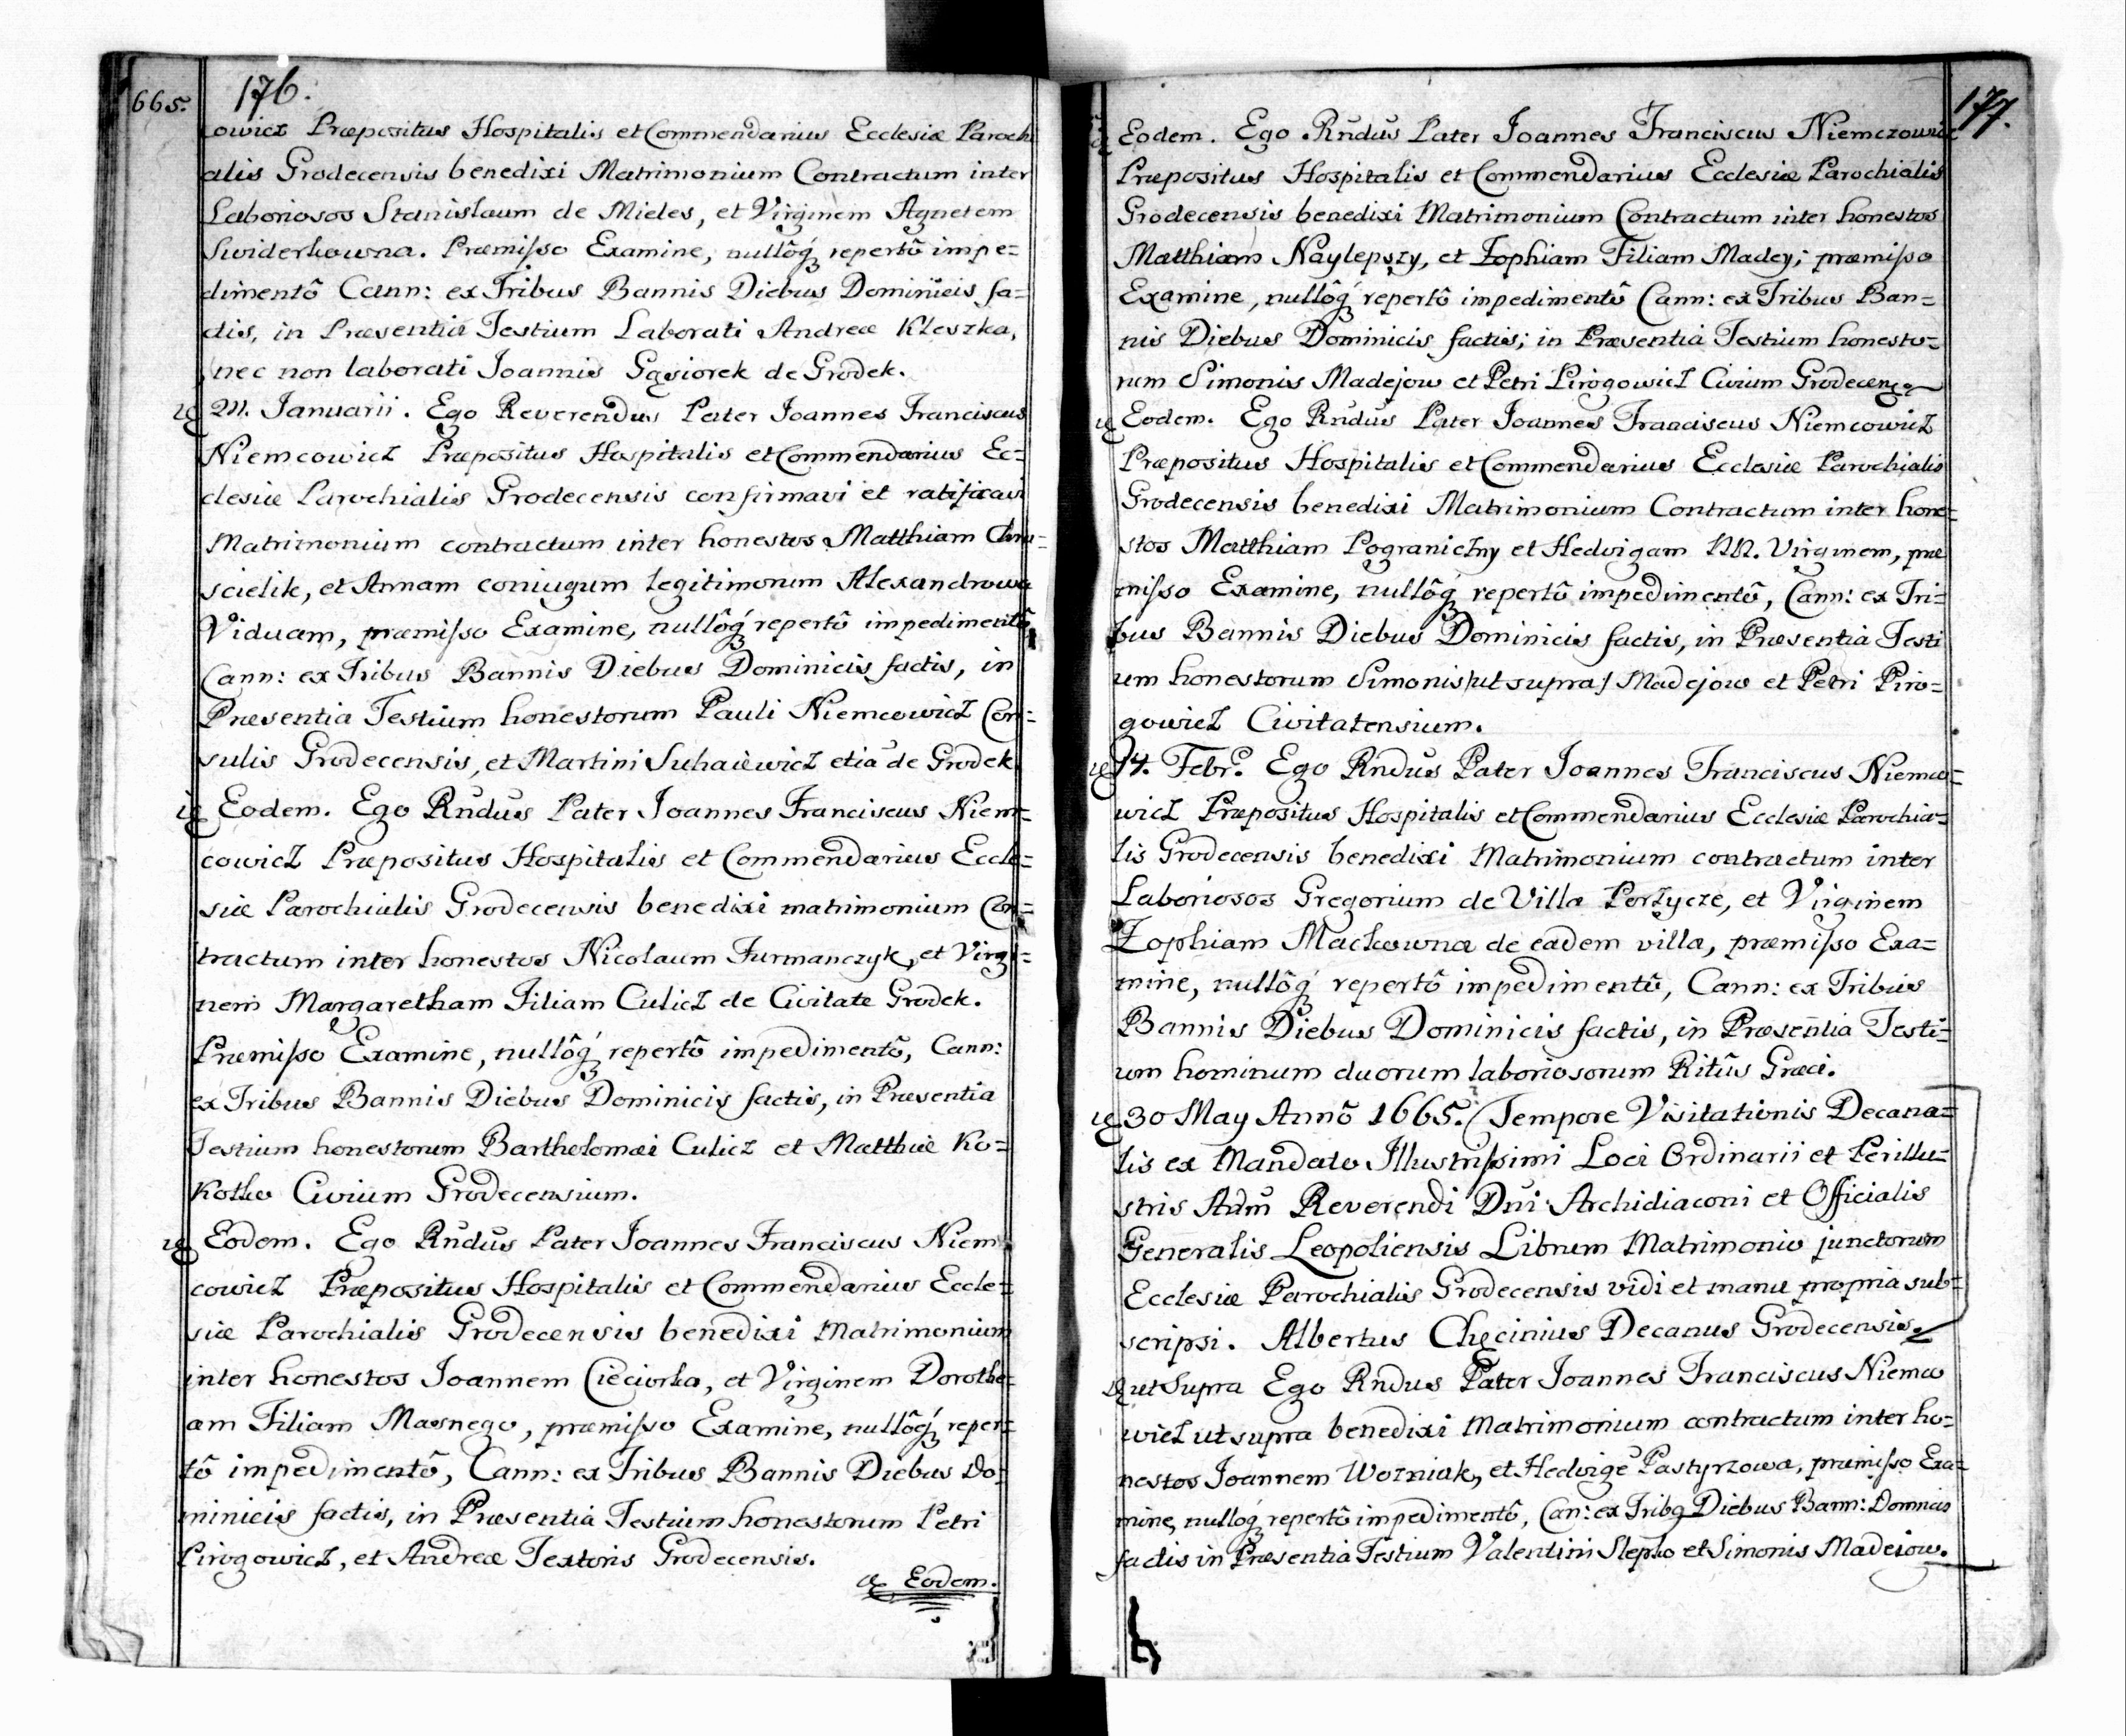 665.
176.
cowicz Præpositus Hospitalis et Commendarius Ecclesiæ Parochi
alis Grodecensis benedixi Matrimonium Contractum inter
Laboriosos Stanislaum de Mieles, et Virginem Agnetem
Swiderkowna. Præmisso Examine, nullôq́ repertô impe=
dimentô Cann: ex Tribus Bannis Diebus Dominicis fa=
ctis, in Præsentia Testium Laborati Andreæ Kleszka,
nec non laborati Joannis Gąsiorek de Grodek.
M. Januarii. Ego Reverendus Pater Joannes Franciscus
Niemcowicz Præpositus Hospitalis et Commendarius Ec=
clesiæ Parochialis Grodecensis confirmavi et ratificavi
Matrimonium contractum inter honestos Matthiam Chru=
scielik, et Annam coniugum legitimorum Alexandrowa
Viduam, præmisso Examine, nullôq́ repertô impedimentô
Cann: ex Tribus Bannis Diebus Dominicis factis, in
Præsentia Testium honestorum Pauli Niemcowicz Con=
sulis Grodecensis, et Martini Suhaiewicz etiā de Grodek.
Eodem. Ego Rndus Pater Joannes Franciscus Niem=
cowicz Præpositus Hospitalis et Commendarius Eccle=
siæ Parochialis Grodecensis benedixi matrimonium Con=
tractum inter honestos Nicolaum Furmanczyk, et Virgi=
nem Margaretham Filiam Culicz de Civitate Grodek.
Præmisso Examine, nullôq́ repertô impedimentô, Cann:
ex Tribus Bannis Diebus Dominicis factis, in Præsentia
Testium honestorum Bartholomæi Culicz et Matthiæ Ko=
kotko Civium Grodecensium.
Eodem. Ego Rndus Pater Joannes Franciscus Niem
cowicz Præpositus Hospitalis et Commendarius Eccle=
siæ Parochialis Grodecensis benedixi Matrimonium
inter honestos Joannem Cieciorka, et Virginem Dorothe=
am Filiam Masnego, præmisso Examine, nullôq́ reper=
tô impedimentô, Cann: ex Tribus Bannis Diebus Do=
minicis factis, in Præsentia Testium honestorum Petri
Pirogowicz, et Andreæ Textoris Grodecensis.
Eodem.
177.
Eodem. Ego Rndus Pater Joannes Franciscus Niemczowicz
Præpositus Hospitalis et Commendarius Ecclesiæ Parochialis
Grodecensis benedixi Matrimonium Contractum inter honestos
Matthiam Naylepszy, et Zophiam Filiam Madey; præmisso
Examine, nullôq́ repertô impedimentô Cann: ex Tribus Ban=
nis Diebus Dominicis factis; in Præsentia Testium honesto=
rum Simonis Madejow et Petri Pirogowicz Civium Grodecen
Eodem. Ego Rndus Pater Joannes Franciscus Niemcowicz
Præpositus Hospitalis et Commendarius Ecclesiæ Parochialis
Grodecensis benedixi Matrimonium Contractum inter hone=
stos Matthiam Pograniczny et Hedvigam NN. Virginem, præ
misso Examine, nullôq́ repertô impedimentô, Cann: ex Tri=
bus Bannis Diebus Dominicis factis, in Præsentia Testi
um honestorum Simonis /ut supra/ Madejow et Petri Piro=
gowicz Civitatensium.
14. Febr. Ego Rndus Pater Joannes Franciscus Niemco=
wicz Præpositus Hospitalis et Commendarius Ecclesiæ Parochia=
lis Grodecensis benedixi Matrimonium contractum inter
Laboriosos Gregorium de Villa Porzycze, et Virginem
Zophiam Mackowna de eadem villa, præmisso Exa=
mine, nullôq́ repertô impedimentô, Cann: ex Tribus
Bannis Diebus Dominicis factis, in Præsentia Testi=
um hominum duorum laboriosorum Ritûs Græci.
30 May Annô 1665. Tempore Visitationis Decana=
lis ex Mandato Illustrissimi Loci Ordinarii et Perillu=
stris Adm Reverendi Dni Archidiaconi et Officialis
Generalis Leopoliensis Librum Matrimonio junctorum
Ecclesiæ Parochialis Grodecensis vidi et manu propria sub=
scripsi. Albertus Chęcinius Decanus Grodecensis.
ut Supra Ego Rndus Pater Joannes Franciscus Niemco
wicz ut supra benedixi Matrimonium contractum inter ho=
nestos Joannem Wozniak, et Hedvigē Pastyrzowa, præmisso Exa=
mine, nullôq́ repertô impedimentô, Can: ex Tribq Diebus Bann: Domnicis
factis in Præsentia Testium Valentini Slepko et Simonis Madeiow.